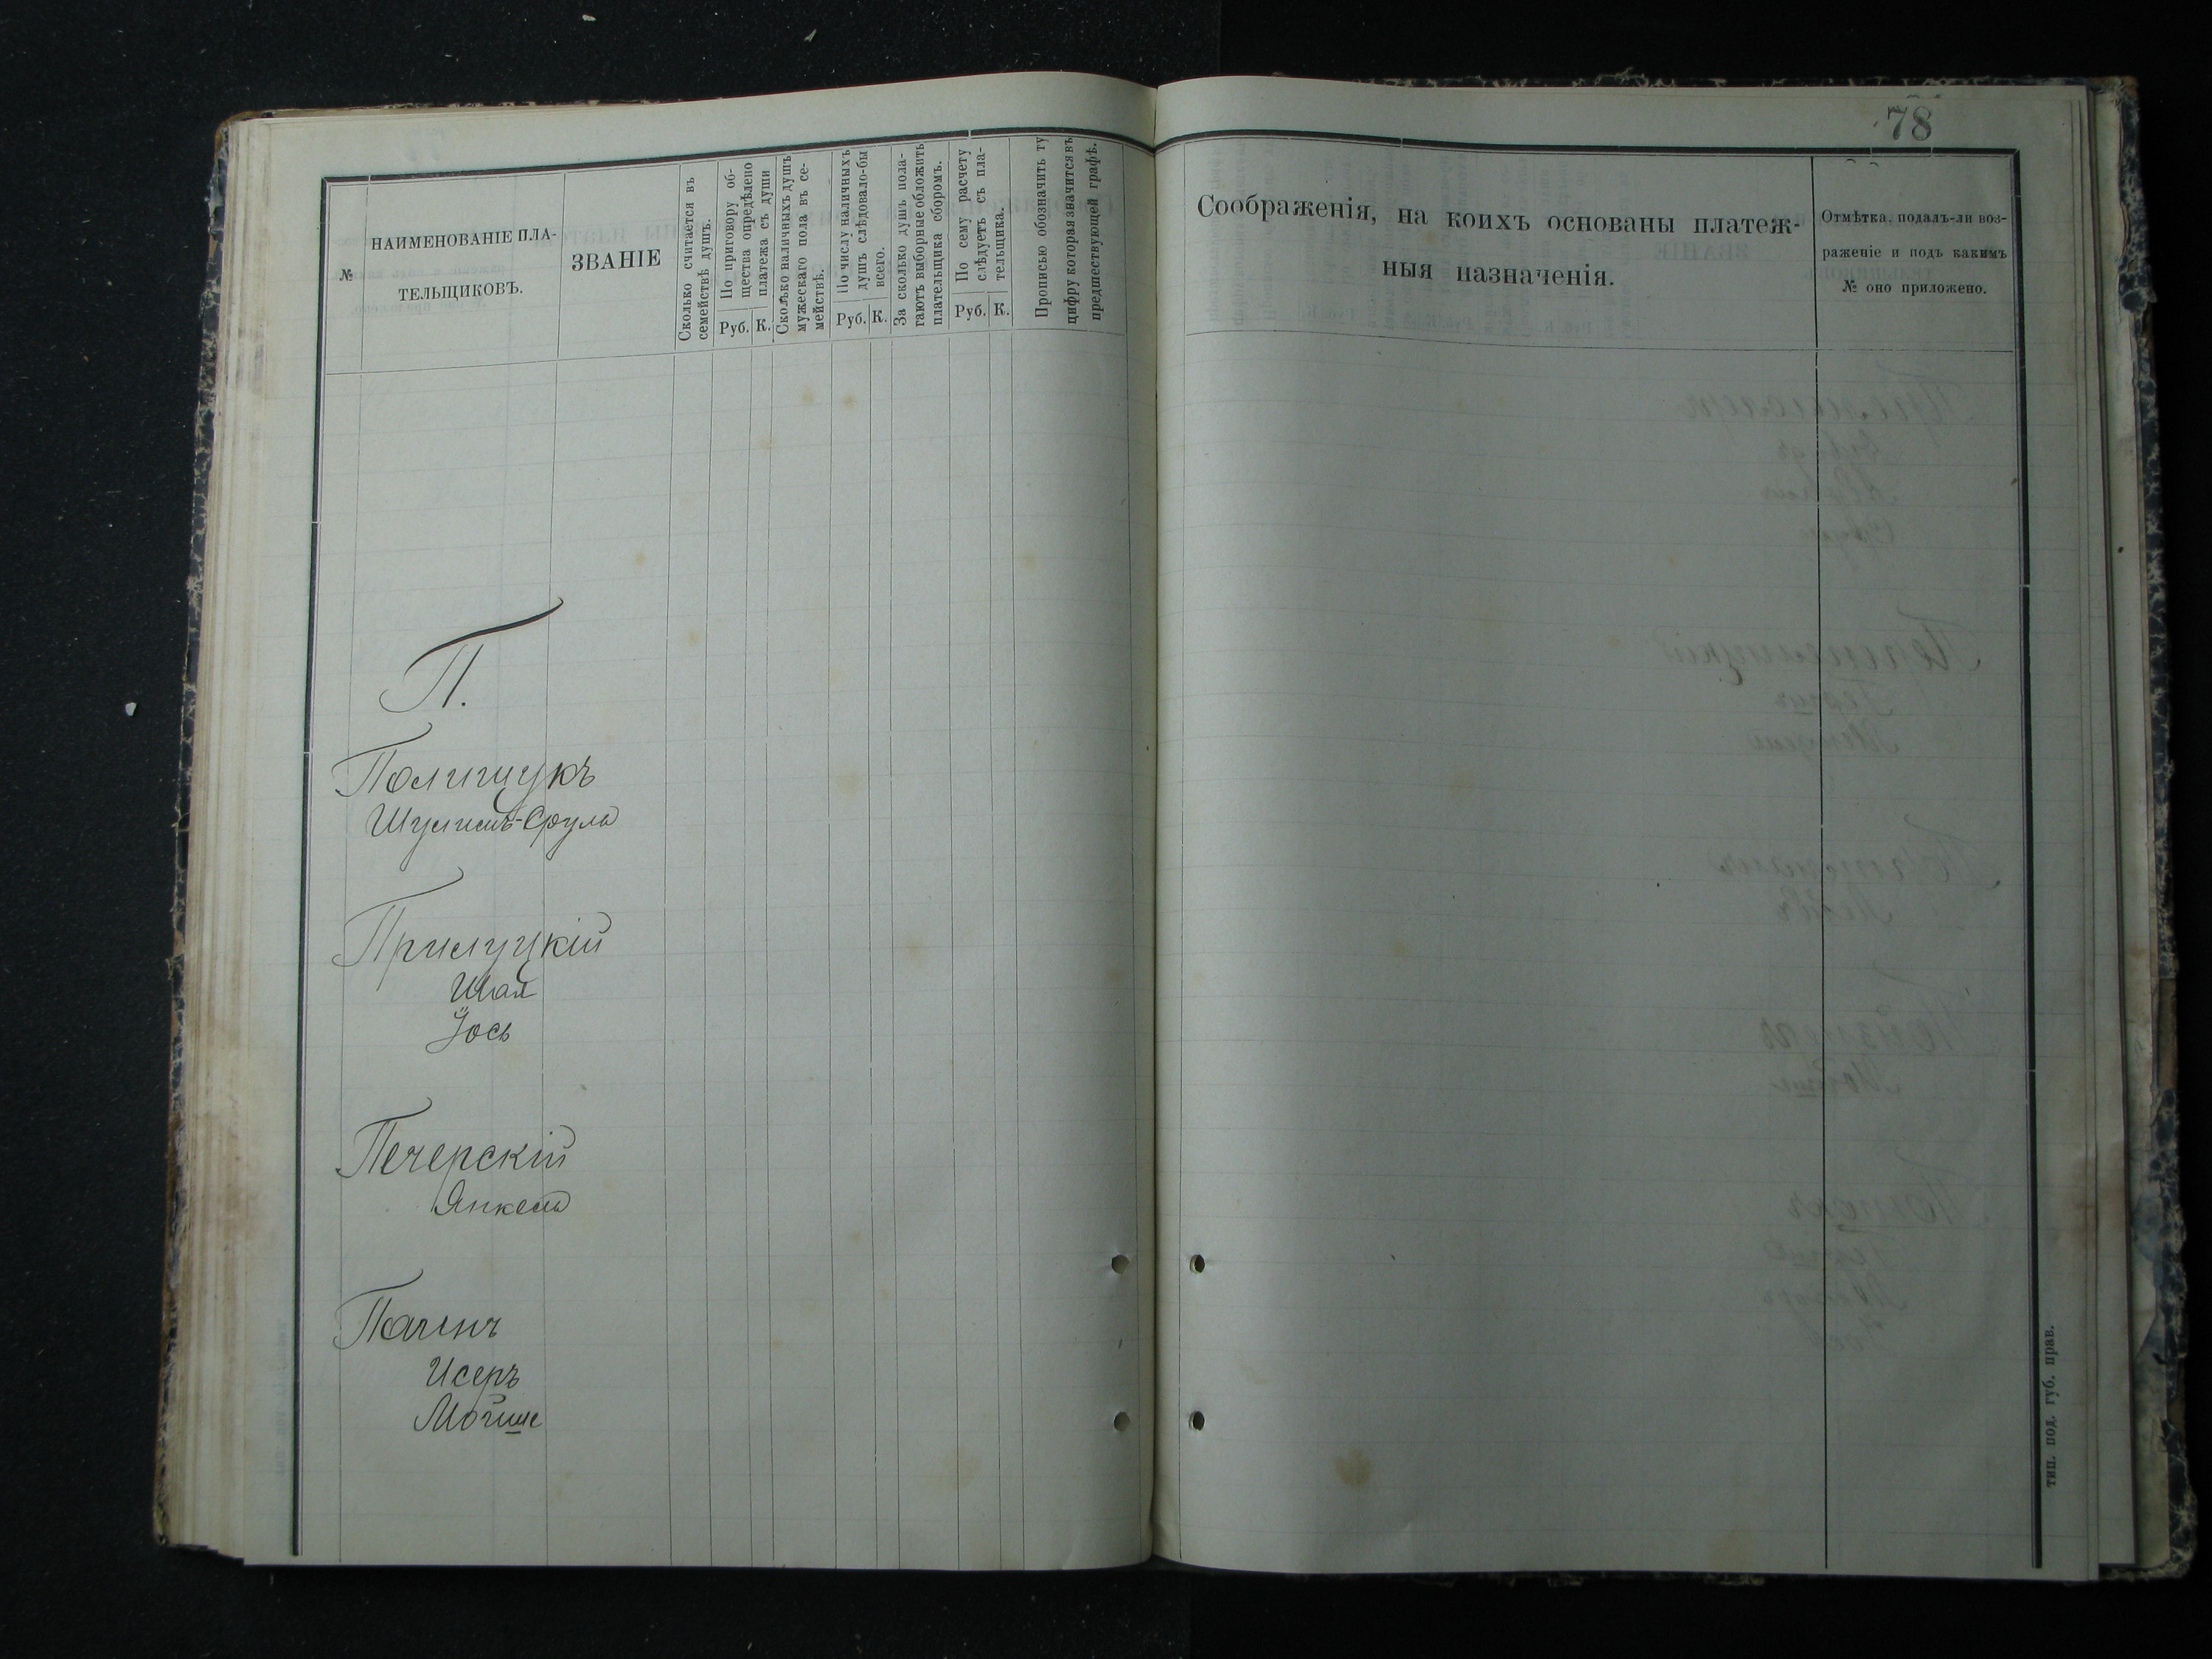 78
№
НАИМЕНОВАНІЕ ПЛА-
ТЕЛЬЩИКОВЪ.
ЗВАНІЕ
Сколько считается въ
семействѣ душъ.
По приговору об-
щества опредѣлено
платежа съ души
Руб. К.
Сколько наличныхъ душъ
мужескаго пола въ се-
мействѣ.
По числу наличныхъ
душъ слѣдовало-бы
всего.
Руб. К.
За сколько душъ пола-
гаютъ выборные обложить
плательщика сборомъ.
По сему расчету
слѣдуетъ съ пла-
тельщика.
Руб. К.
Прописью обозначить ту
цифру которая значится въ
предшествующей графѣ.
Соображенія, на коихъ основаны платеж-
ныя назначенія.
Отмѣтка, подалъ-ли воз-
раженіе и подъ какимъ
№ оно приложено.
П.
Полищукъ
Шулимъ-Сруль
Прилуцкій
Шая
Іось
Печерскій
Янкель
Пачинъ
Исеръ
Мойше
тип. под. губ. прав.